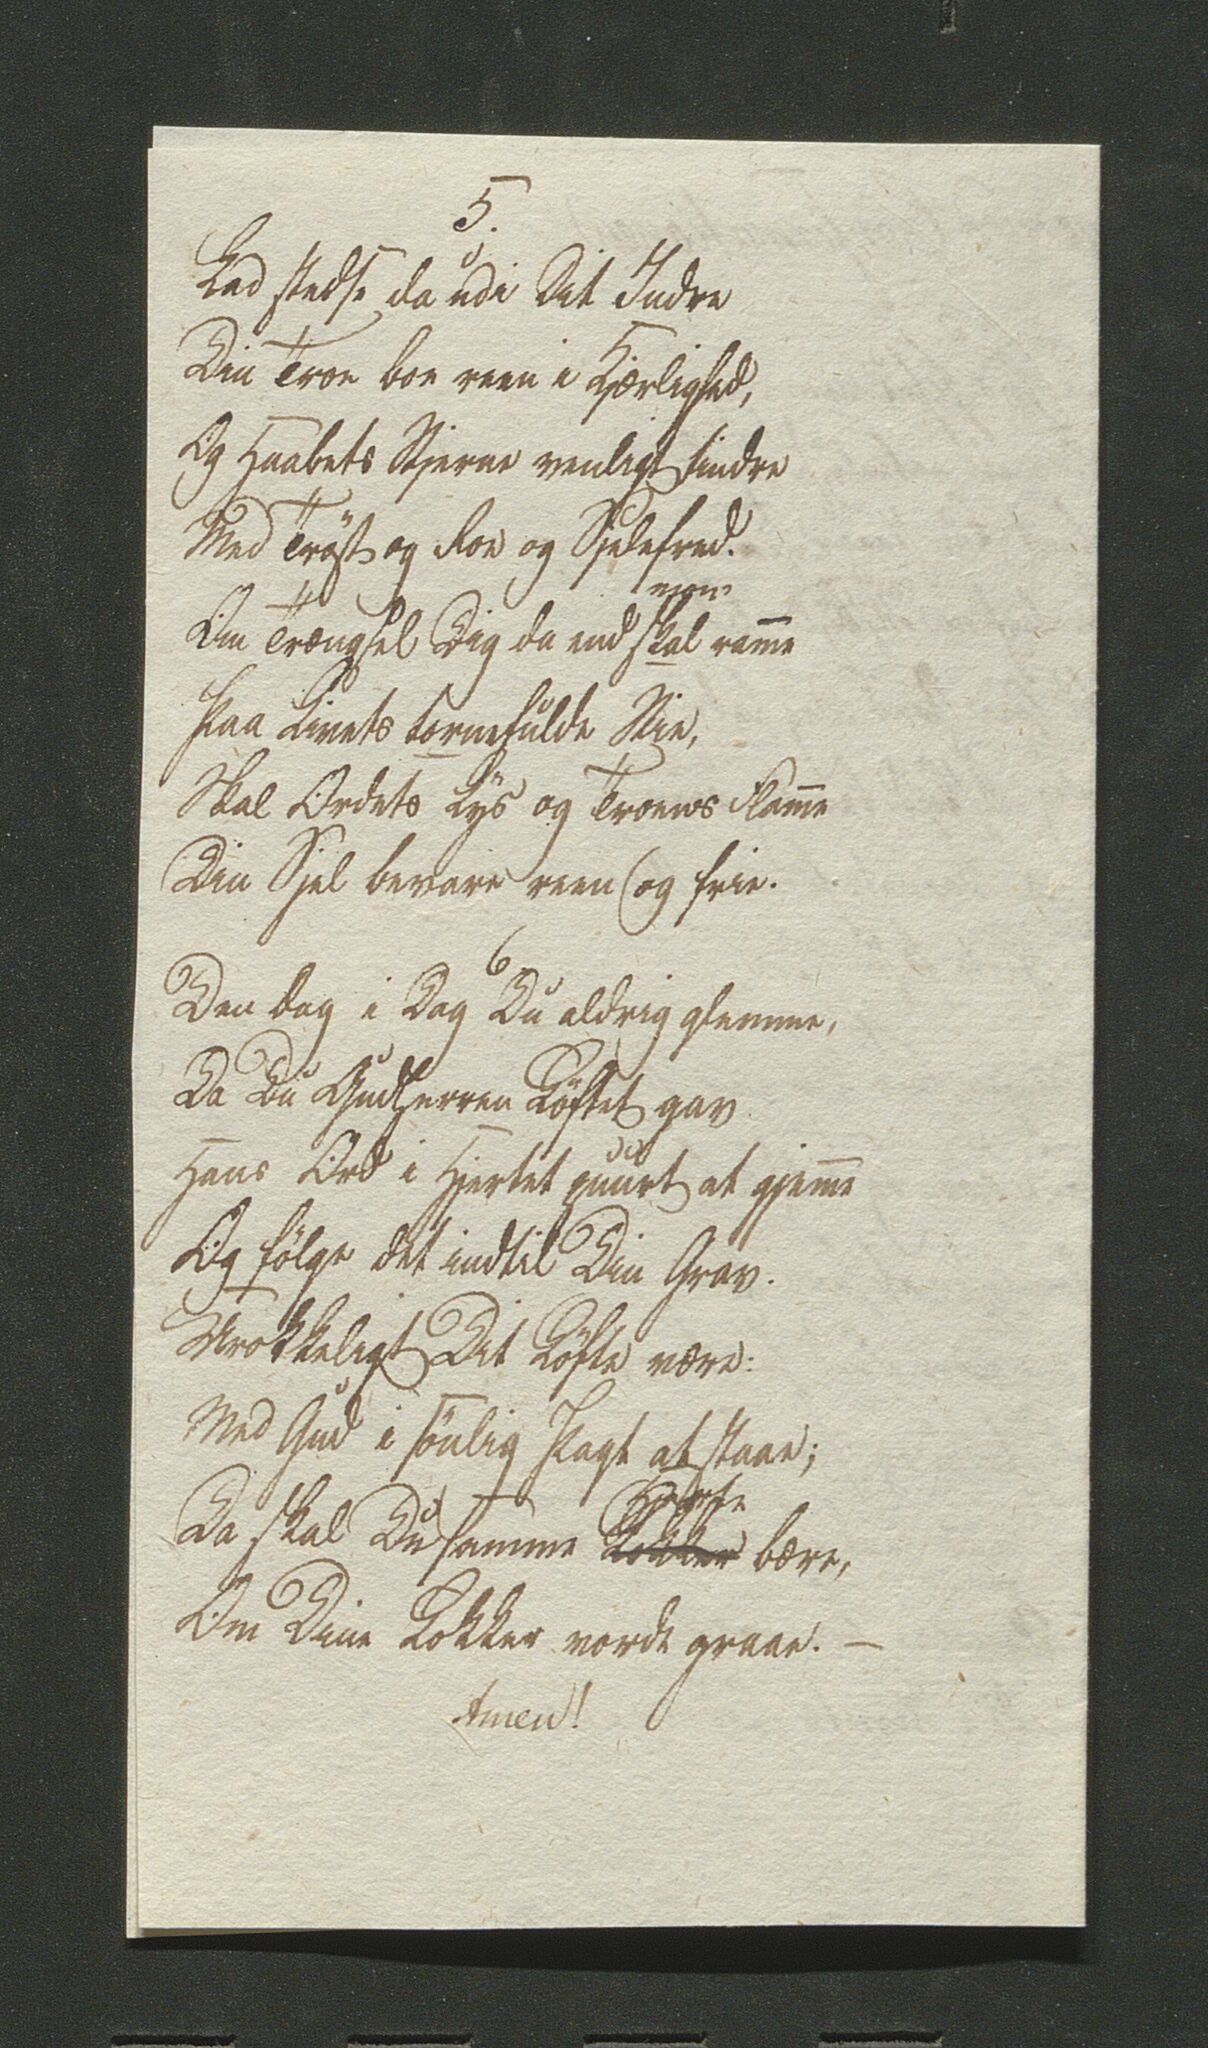 5.
Lad stedse da udi Dit Indre
Din Troe boe reen i Kjærlighed,
Og Haabets Stjerne venligt tindre
Med Trøst og Roe og Sjelefred.
Om Trængsel Dig da end skal ramme
Paa Livets tornefulde Stie,
Skal Ordets Lys og Troens Flamme
Din Sjel bevare reen og frie.
6
Den Dag i Dag Du aldrig glemme,
Da Du Gud Herren Løftet gav
Hans Ord i Hjertet puurt at gjemme
Og følge det indtil Din Grav.
Urokkeligt Dit Løfte være:
Med Gud i sønlig Pagt at staae;
Da skal Du samme Lokker bære,
Om Dine Lokker vorde graae. —
Amen!